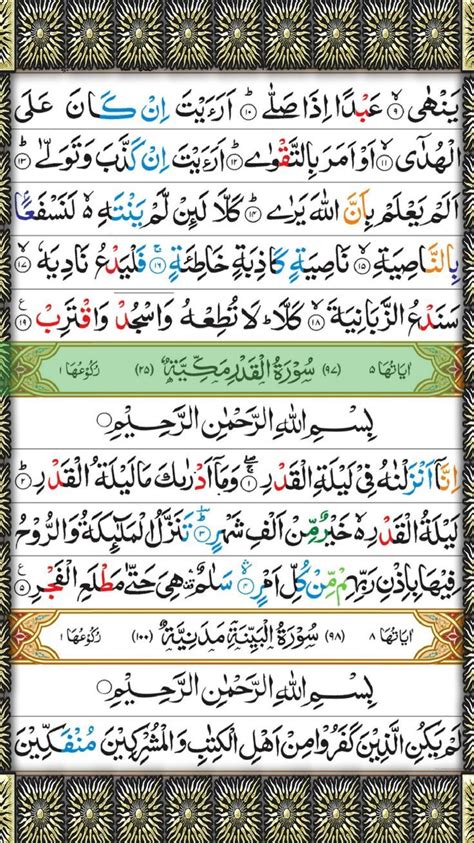 يَنْهٰى ۙ﴿۹﴾ عَبْدًا اِذَا صَلّٰى ؕ﴿۱۰﴾ اَرَءَيْتَ اِنْ كَانَ عَلَى
الْهُدٰٓى ۙ﴿۱۱﴾ اَوْ اَمَرَ بِالتَّقْوٰى ؕ﴿۱۲﴾ اَرَءَيْتَ اِنْ كَذَّبَ وَتَوَلّٰى ؕ﴿۱۳﴾
اَلَمْ يَعْلَمْ بِاَنَّ اللّٰهَ يَرٰى ؕ﴿۱۴﴾ كَلَّا لَئِنْ لَّمْ يَنْتَهِ ۙ۬ لَنَسْفَعًۢا
بِالنَّاصِيَةِ ۙ﴿۱۵﴾ نَاصِيَةٍ كَاذِبَةٍ خَاطِئَةٍ ۚ﴿۱۶﴾ فَلْيَدْعُ نَادِيَهٗ ۙ﴿۱۷﴾
سَنَدْعُ الزَّبَانِيَةَ ۙ﴿۱۸﴾ كَلَّا ؕ لَا تُطِعْهُ وَاسْجُدْ وَاقْتَرِبْ ﴿۱۹﴾ ع
اٰيَاتُهَا ۵ (۹۷) سُوْرَةُ الْقَدْرِ مَكِّيَّةٌ (۲۵) رُكُوْعُهَا ۱
بِسْمِ اللّٰهِ الرَّحْمٰنِ الرَّحِيْمِ
اِنَّاۤ اَنْزَلْنٰهُ فِيْ لَيْلَةِ الْقَدْرِ ۚۖ﴿۱﴾ وَمَاۤ اَدْرٰىكَ مَا لَيْلَةُ الْقَدْرِ ؕ﴿۲﴾
لَيْلَةُ الْقَدْرِ ۙ۬ خَيْرٌ مِّنْ اَلْفِ شَهْرٍ ؕ﴿۳﴾ تَنَزَّلُ الْمَلٰٓئِكَةُ وَالرُّوْحُ
فِيْهَا بِاِذْنِ رَبِّهِمْ مِّنْ كُلِّ اَمْرٍ ۙ﴿۴﴾ سَلٰمٌ ۛ۫ هِيَ حَتّٰى مَطْلَعِ الْفَجْرِ ﴿۵﴾ ع
اٰيَاتُهَا ۸ (۹۸) سُوْرَةُ الْبَيِّنَةِ مَدَنِيَّةٌ (۱۰۰) رُكُوْعُهَا ۱
بِسْمِ اللّٰهِ الرَّحْمٰنِ الرَّحِيْمِ
لَمْ يَكُنِ الَّذِيْنَ كَفَرُوْا مِنْ اَهْلِ الْكِتٰبِ وَالْمُشْرِكِيْنَ مُنْفَكِّيْنَ